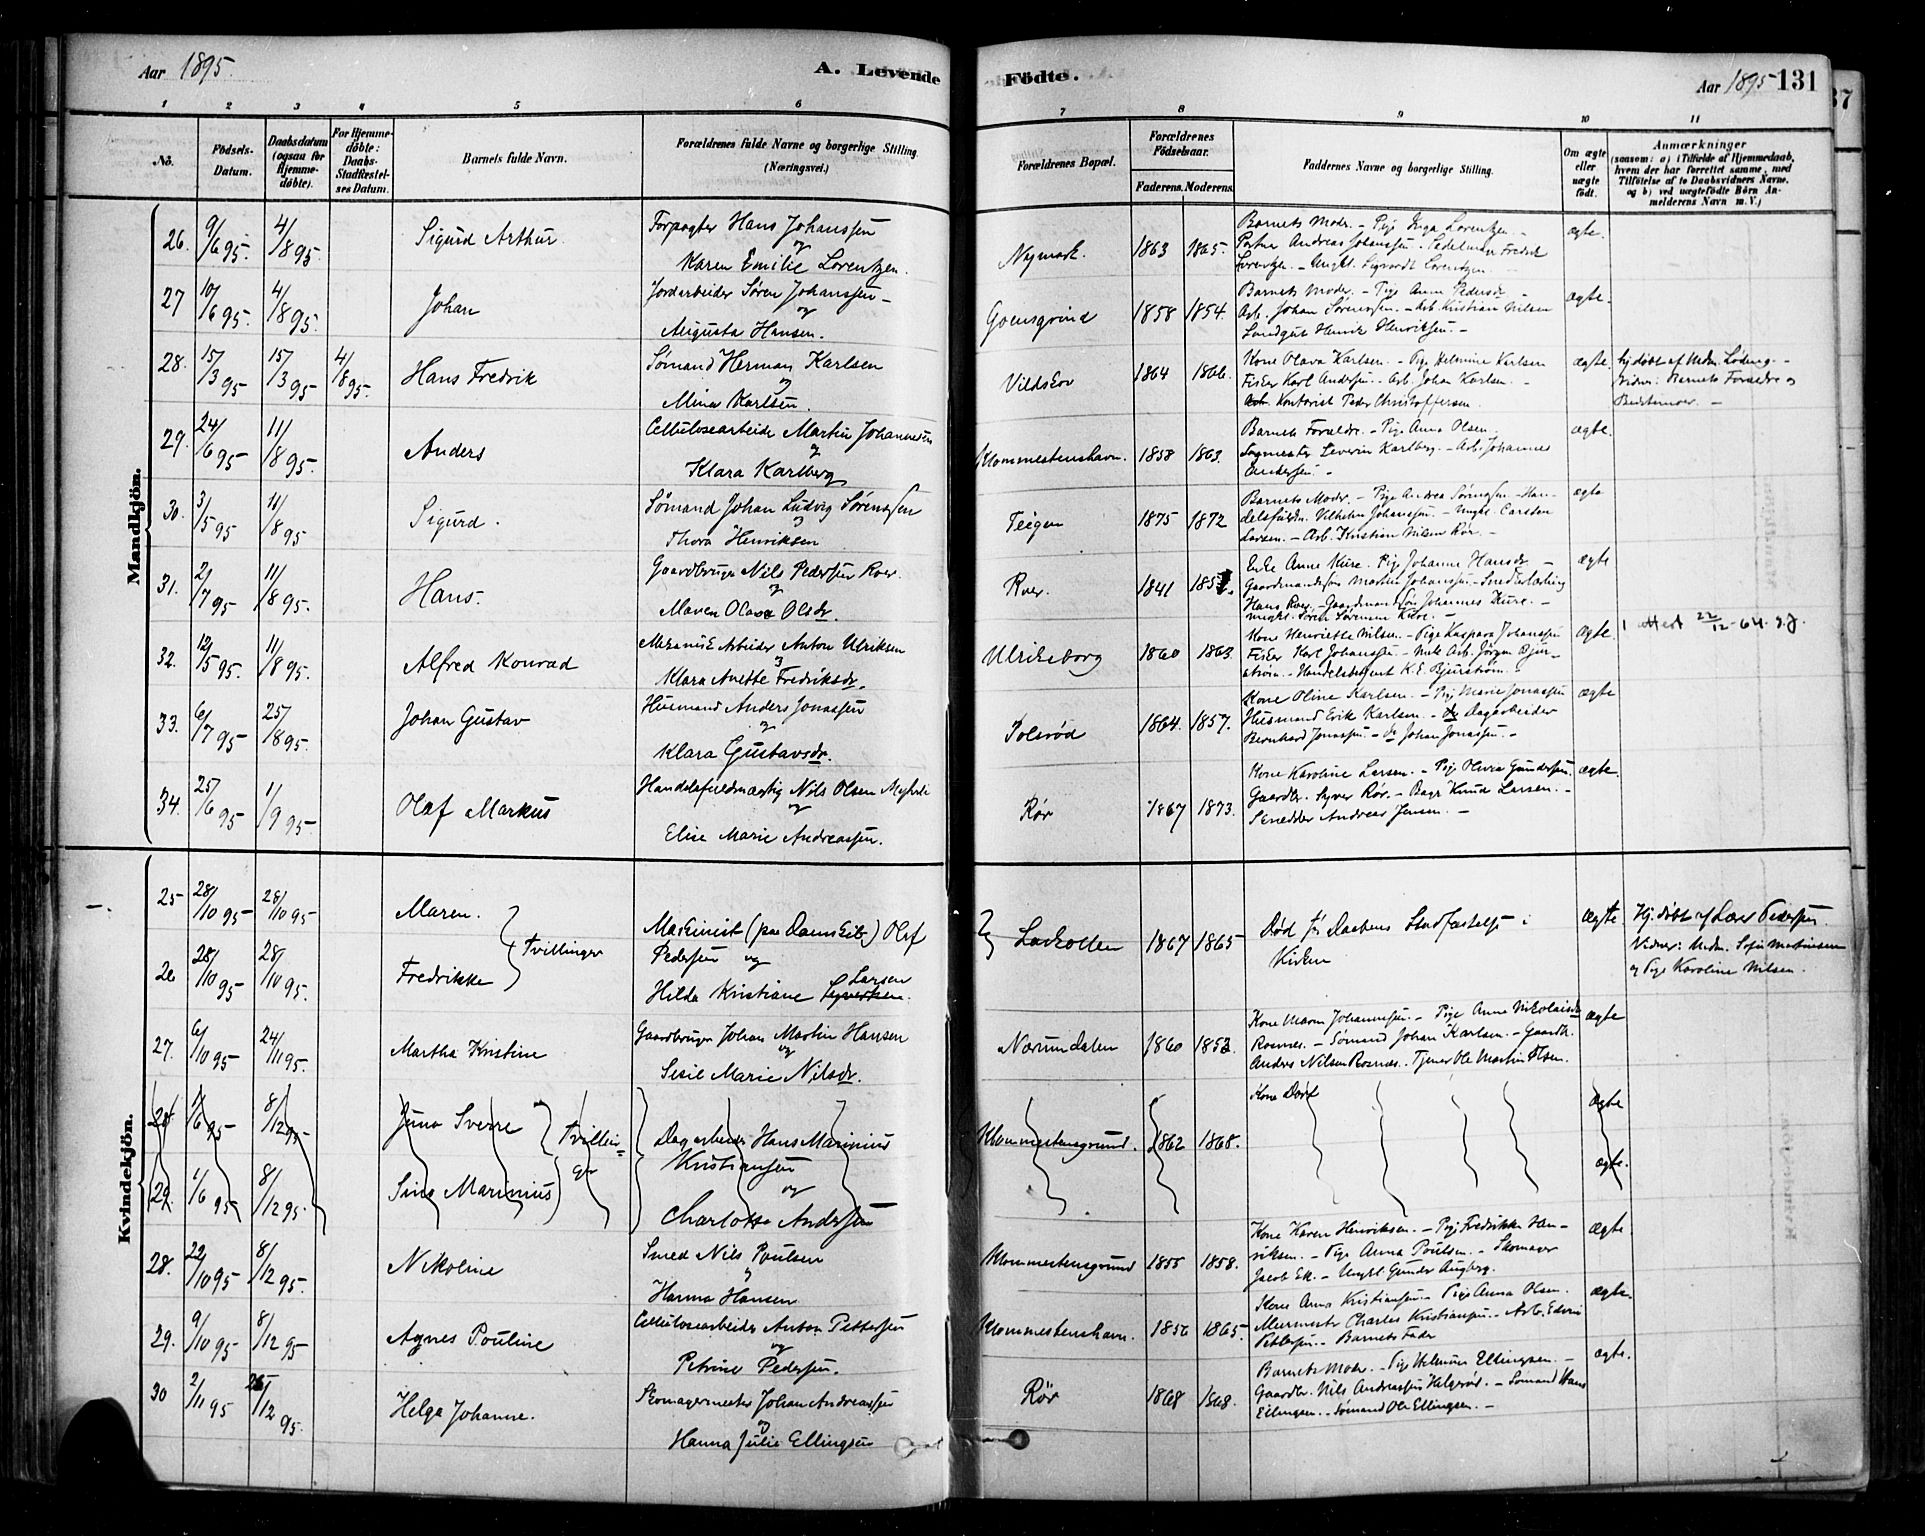 Aar 1895.
A. Levende
Födte.
Aar 1895
131
1 2 3 4 5 6 7 8 9 10 11
No.
Födsels-Datum.
Daabsdatum (ogsaa for Hjemme-döbte).
For Hjemme-döbte: Daabs-Stadfæstel-ses Datum.
Barnets fulde Navn.
Forældrenes fulde Navne og borgerlige Stilling. (Næringsvei.)
Forældrenes Bopæl.
Forældrenes Födselsaar.
Faderens. Moderens.
Faddernes Navne og borgerlige Stilling.
Om ægte eller uægte födt.
Anmærkninger
(saasom: a) i Tilfælde af Hjemmedaab, hvem der har forrettet samme, med Tilföielse af to Daabsvidners Navne, og b) ved uægtefödte Börn An-melderens Navn m. V.)
Mandkjön.
26. 9/6 95. 4/8 95. Sigurd Arthur.
Forpagter Hans Johanssen
og
Karen Emilie Lorentzen.
Nymark. 1863 1865.
Barnets Moder. - Pige Inga Lorentzen. -
Andreas Johanssen. Fredrik
Lorentzen. - Ungk. Sigvardt Lorentzen.
ægte.
27 10/6 95. 4/8 95. Johan
Jordarbeider Søren Johanssen -
og
Augusta Hansen.
1858 1854.
Barnets Moder - Pige Anne Pedersdr -
Arb. Johan Sørenssen. - Arb. Kristian Nilsen
Henrik Henriksen. -
ægte.
28. 15/3 95 15/3 95 4/8 95. Hans Fredrik
Sømand Herman Karlsen
og
Mina Karlsen.
Vildskov 1864 1866.
Kone Olava Karlsen. - Pige Helmine Karlsen
Fisker Karl Andersen. - Arb. Johan Karlsen. -
Kontorist Peder Christoffersen.
ægte.
Hj.døbt af Mdm. Lodeng. -
Vidner: Barnets Forældre og
Bedstemoer. -
29. 24/6 95 11/8 95. Anders
Cellulosearbeider Martin Johannesen
og
Klara Karlberg
Klommestenshavn. 1858 1863.
Barnets Forældre. - Pige Anna Olsen.
Severin Karlberg. - Arb. Johannes
Andersen. -
ægte.
30. 3/5 95 11/8 95 Sigurd.
Sømand Johan Ludvig Sørenssen
og
Thora Henriksen
Teigen 1875 1872
Barnets Moder. - Pige Andrea Sørenssen - Han-
delsfuldm. Vilhelm Johanssen. - Ungk. Carsten
Larsen. - Arb. Kristian Nilsen Rør. -
ægte
31. 2/7 95 11/8 95. Hans.
Gaardbruger Nils Pedersen Roer.
og
Maren Olava Olsdr.
Roer. 1841
Enke Anne Kure. Pige Johanne Hansdr -
Gaardmandssøn Martin Johanssen -
Hans Roer. - Johannes Kure. -
Ungk. Søren Sørensen Kure. -
ægte
32. 12/5 95. 11/8 95. Alfred Konrad
Mekanisk Arbeider Anton Ulriksen
og
Klara Anette Fredriksdr.
Ulrikeborg 1860 1863.
Kone Henriette Nilsen. - Pige Kaspara Johanssen
Fisker Karl Johanssen - Mek Arb. Jørgen Bjur-
strøm. - Handelsbetjent K. E. Bjurstrøm. -
ægte.
1 Attest 22/12-64. S.J.
33. 6/7 95 25/8 95. Johan Gustav
Husmand Anders Jonassen
og
Klara Gustavsdr.
Solerød 1864. 1857.
Kone Oline Karlsen. - Pige Marie Jonassen
Husmand Erik Karlsen. - Dagarbeider
Bernhard Jonassen. - do Johan Jonassen. -
ægte
34. 25/6 95 1/9 95. Olaf Markus
Handelsfuldmægtig Nils Olsen
og
Elise Marie Andreassen.
Rör 1867 1873.
Kone Karoline Larsen. - Pige Olivia Gundersen.
Gaardbr. Syver Rør. - Bager Knud Larsen. -
Andreas Jensen. -
ægte.
Kvindekjön.
25 28/10 95 28/10 95 Maren.
26 28/10 95 28/10 95. Fredrikke
Tvillinger
Maskinist (paa Damskib) Olaf
Pedersen og
Larsen
Hilda Kristiane Syvertsen.
Larkollen 1867 1865
Død før Daabens Stadfæstelse i
Kirken
ægte
Hj.døbt af Lars Pedersen.
Vidner: Mdm. Sofie Mathisen
og Pige Karoline Nilsen.
27. 6/10 95 24/11 95. Martha Kristine
Gaardbruger Johan Martin Hansen
og
Sesie Marie Nilsdr.
Nærumdalen 1860 1853.
Kone Maren Johannesen. - Pige Anne Nikolaisdr
Rosnæs. - Sømand Johan Karlsen. - Gaardbr.
Anders Nilsen Rosnæs. - Tjener Ole Martin Olsen.
ægte
28. 1/6 95 8/12 95. Juno Sverre
29. 1/6 95 8/12 95. Sins Marinius
Tvillin-
ger
Dagarbeider Hans Marinius
Kristiansen
og
Charlotte Andersen
Klommestensgrund. 1862 1868.
Kone
ægte
ægte.
28. 22/10 95 8/12 95. Nikoline
Smed Nils Poulsen
og
Hanna Hansen
Klommestensgrund 1855 1858.
Kone Karen Henriksen. - Pige Fredrikke Hen-
riksen. - Pige Anna Poulsen. - Skomager
Jacob Ek. - Ungk. Gunder Augberg.
ægte.
29. 9/10 95 8/12 95 Agnes Pouline
Cellulosearbeider Anton Pettersen
og
Petrine Pedersen.
Klommestenshavn. 1856 1865.
Kone Anna Kristiansen. - Pige Anna Olsen.
Murmester Charles Kristiansen. - Arb. Edvin
Pettersen. - Barnets Fader
ægte.
30 2/11 95 26/12 95. Helga Johanne.
Skomagermester Johan Andreassen
og
Hanna Julie Ellingsen
Rör 1868 1868.
Barnets Moder. - Pige Helmine Ellingsen. -
Gaardbr. Nils Andreassen Helgerød. - Sømand Hans
Ellingsen. - Sømand Ole Ellingsen. -
ægte.